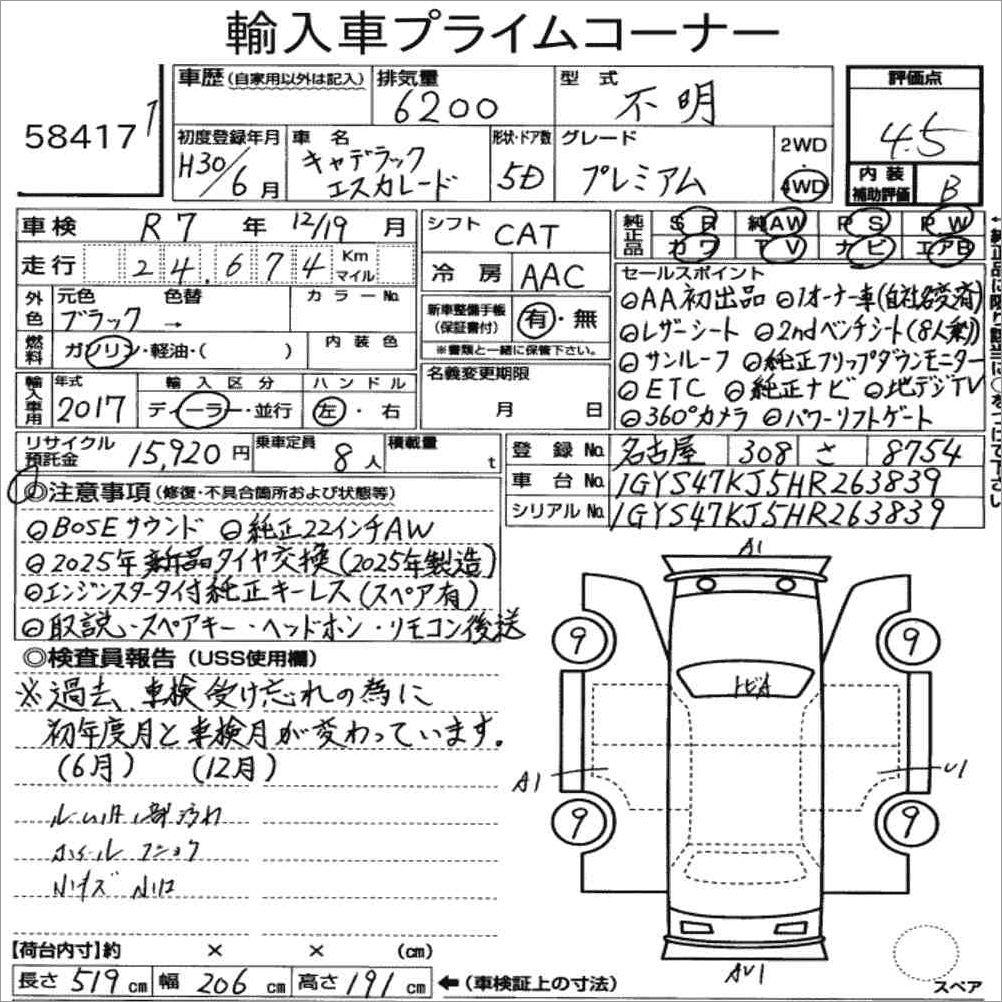 輸入車プライムコーナー
58417
車歴(自家用以外は記入)
排気量 6200
型式 不明
評価点 4.5
初度登録年月 H30/6月
車名 キャデラック エスカレード
形状・ドア数 5D
グレード プレミアム
2WD・4WD
内装補助評価 B
車検 R7年 12/19月
シフト CAT
純正品 SR 純AW PS PW
カワ TV ナビ エアB
走行 24,674 Km マイル
冷房 AAC
セールスポイント
⊙AA初出品 ⊙1オーナー車(自社名変済)
⊙レザーシート ⊙2ndベンチシート(8人乗)
⊙サンルーフ ⊙純正フリップダウンモニター
⊙ETC ⊙純正ナビ ⊙地デジTV
⊙360°カメラ ⊙パワーリフトゲート
外色 元色 ブラック 色替 → カラーNo.
新車整備手帳(保証書付) 有・無
※書類と一緒に保管下さい。
燃料 ガソリン・軽油・( ) 内装色
輸入車用 年式 2017 輸入区分 ディーラー・並行 ハンドル 左・右
名義変更期限 月 日
リサイクル預託金 15,920円 乗車定員 8人 積載量 t
登録No. 名古屋 308 さ 8754
車台No. 1GYS47KJ5HR263839
シリアルNo. 1GYS47KJ5HR263839
◎注意事項(修復・不具合箇所および状態等)
⊙BOSEサウンド ⊙純正22インチAW
⊙2025年新品タイヤ交換(2025年製造)
⊙エンジンスタータ付純正キーレス(スペア有)
⊙取説・スペアキー・ヘッドホン・リモコン後送
◎検査員報告(USS使用欄)
※過去、車検受け忘れの為に
初年度月と車検月が変わっています。
(6月) (12月)
A1
9 9
トビA
A1 U1
9 9
AU1
【荷台内寸】約 × × (cm)
長さ 519cm 幅 206cm 高さ 191cm ←(車検証上の寸法)
スペア